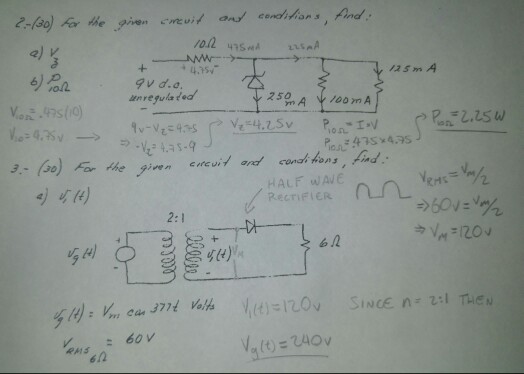 2.-(30) For the given circuit and conditions, find:
a) V
z
b) P
10Ω
10Ω
475mA
225mA
+ 4.75V -
+
9V d.c.
unregulated
-
250 mA
100mA
125mA
V10Ω = .475(10)
V10 = 4.75V →
9V-Vz = 4.75
⇒ -Vz = 4.75-9
Vz = 4.25V
P10Ω = I×V
P10Ω = .475×4.75
P10Ω = 2.25W
3.- (30) For the given circuit and conditions, find:
a) v1(t)
HALF WAVE
RECTIFIER
VRMS = VM/2
⇒ 60V = VM/2
⇒ VM = 120V
2:1
+
vg(t)
-
+
v1(t)
VM
-
6Ω
vg(t) = Vm cos 377t Volts
V1(t) = 120V
SINCE n = 2:1 THEN
VRMS6Ω = 60V
Vg(t) = 240V